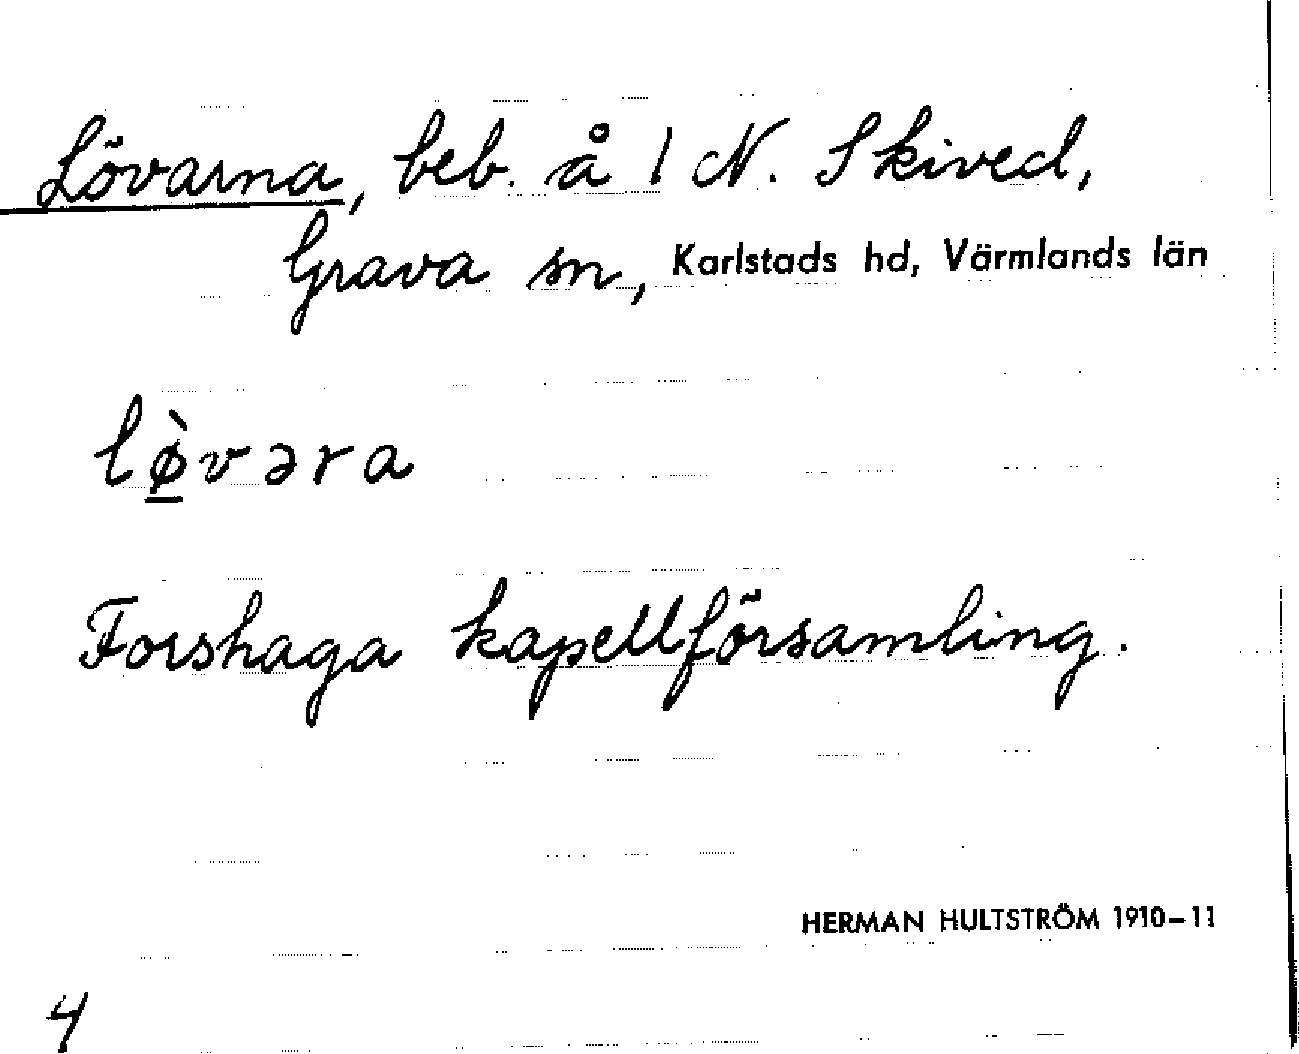 Lövarna, beb. å 1 N. Skived,
Grava sn, Karlstads hd, Värmlands län
lø̲̀vəra
Forshaga kapellförsamling.
HERMAN HULTSTRÖM 1910-11
4